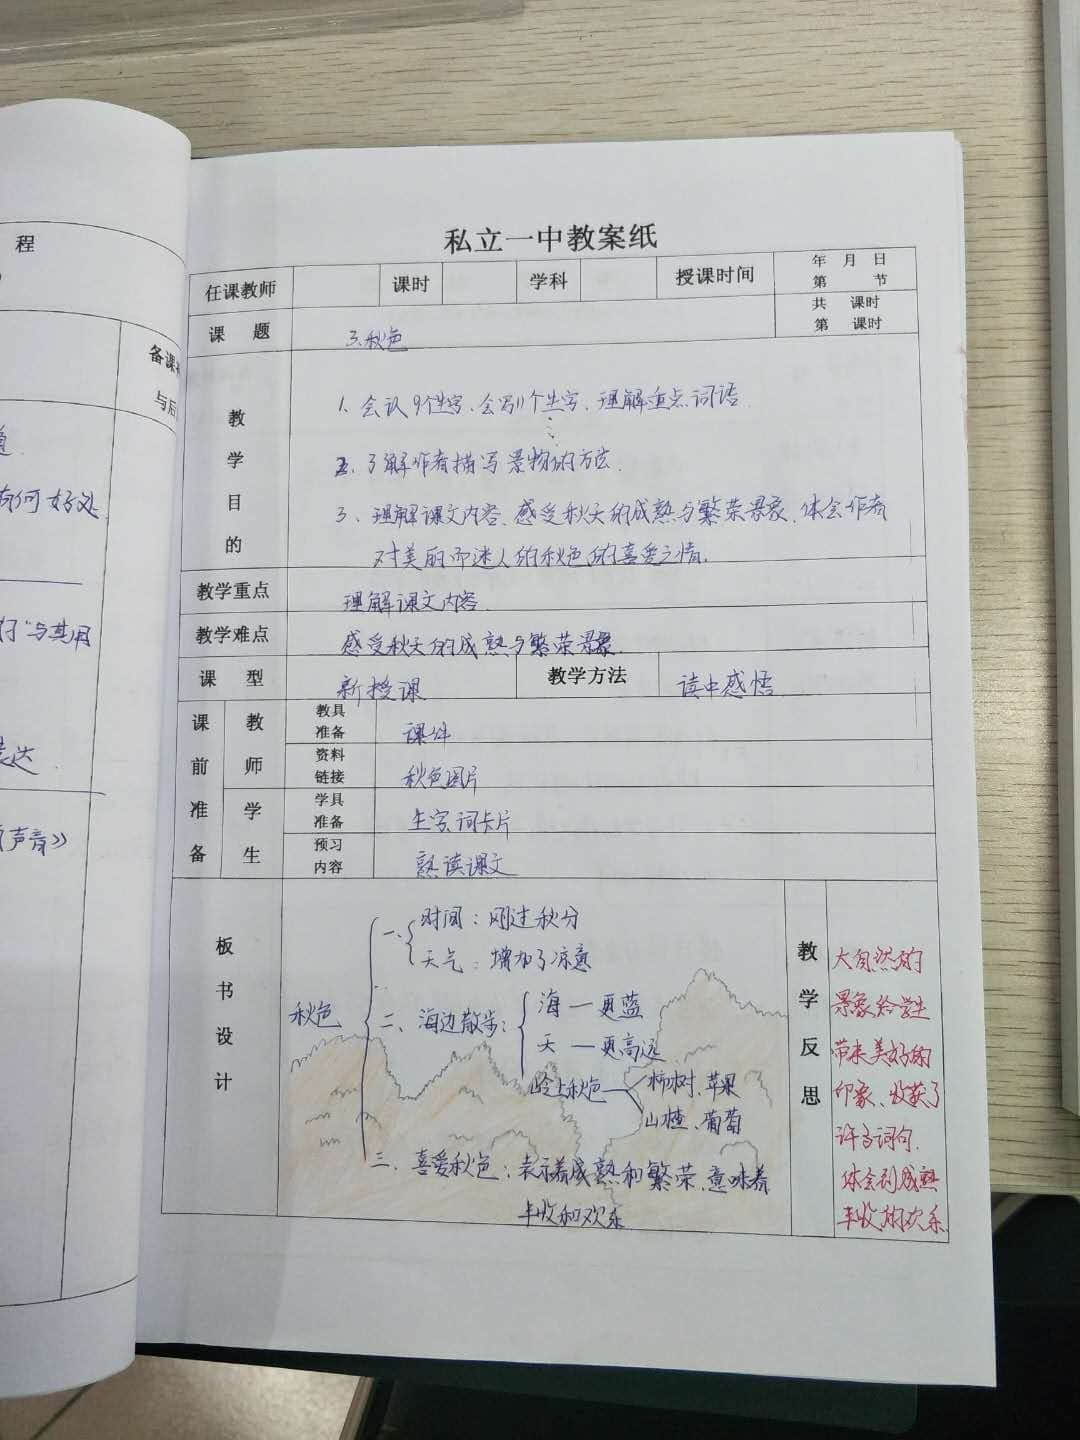 程
备课
与后
有何好处
与其用
表达
声音》
私立一中教案纸
任课教师 课时 学科 授课时间 年 月 日
第 节
课 题 3.秋色 共 课时
第 课时
教学目的
1、会认9个生字、会写11个生字、理解重点词语.
2、了解作者描写景物的方法.
3、理解课文内容、感受秋天的成熟与繁荣景象、体会作者
对美丽而迷人的秋色的喜爱之情.
教学重点 理解课文内容.
教学难点 感受秋天的成熟与繁荣景象.
课 型 新授课 教学方法 读中感悟
课前准备
教师
教具准备 课件
资料链接 秋色图片
学生
学具准备 生字词卡片
预习内容 熟读课文
板书设计
秋色
一、时间：刚过秋分
天气：增加了凉意
二、海边散步：
海 — 更蓝
天 — 更高远
岭上秋色 — 柿树、苹果
山楂、葡萄
三、喜爱秋色：表示着成熟和繁荣、意味着
丰收和欢乐
教学反思
大自然的
景象给学生
带来美好的
印象、收获了
许多词句.
体会到成熟
丰收的欢乐.